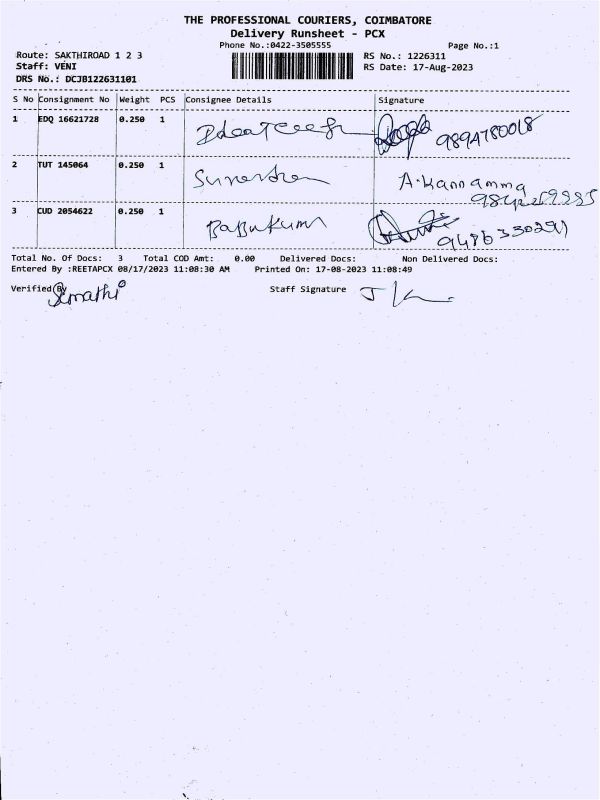 THE PROFESSIONAL COURIERS, COIMBATORE
Delivery Runsheet - PCX
Phone No.:0422-3505555
Page No.:1
Route: SAKTHIROAD 1 2 3
RS No.: 1226311
Staff: VENI
RS Date: 17-Aug-2023
DRS No.: DCJB122631101
S No Consignment No Weight PCS Consignee Details Signature
1 EDQ 16621728 0.250 1 9894780018
2 TUT 145064 0.250 1 A.Kannamma
3 CUD 2054622 0.250 1 Babukum 9486330291
Total No. Of Docs: 3 Total COD Amt: 0.00 Delivered Docs: Non Delivered Docs:
Entered By :REETAPCX 08/17/2023 11:08:30 AM Printed On: 17-08-2023 11:08:49
Verified By Staff Signature